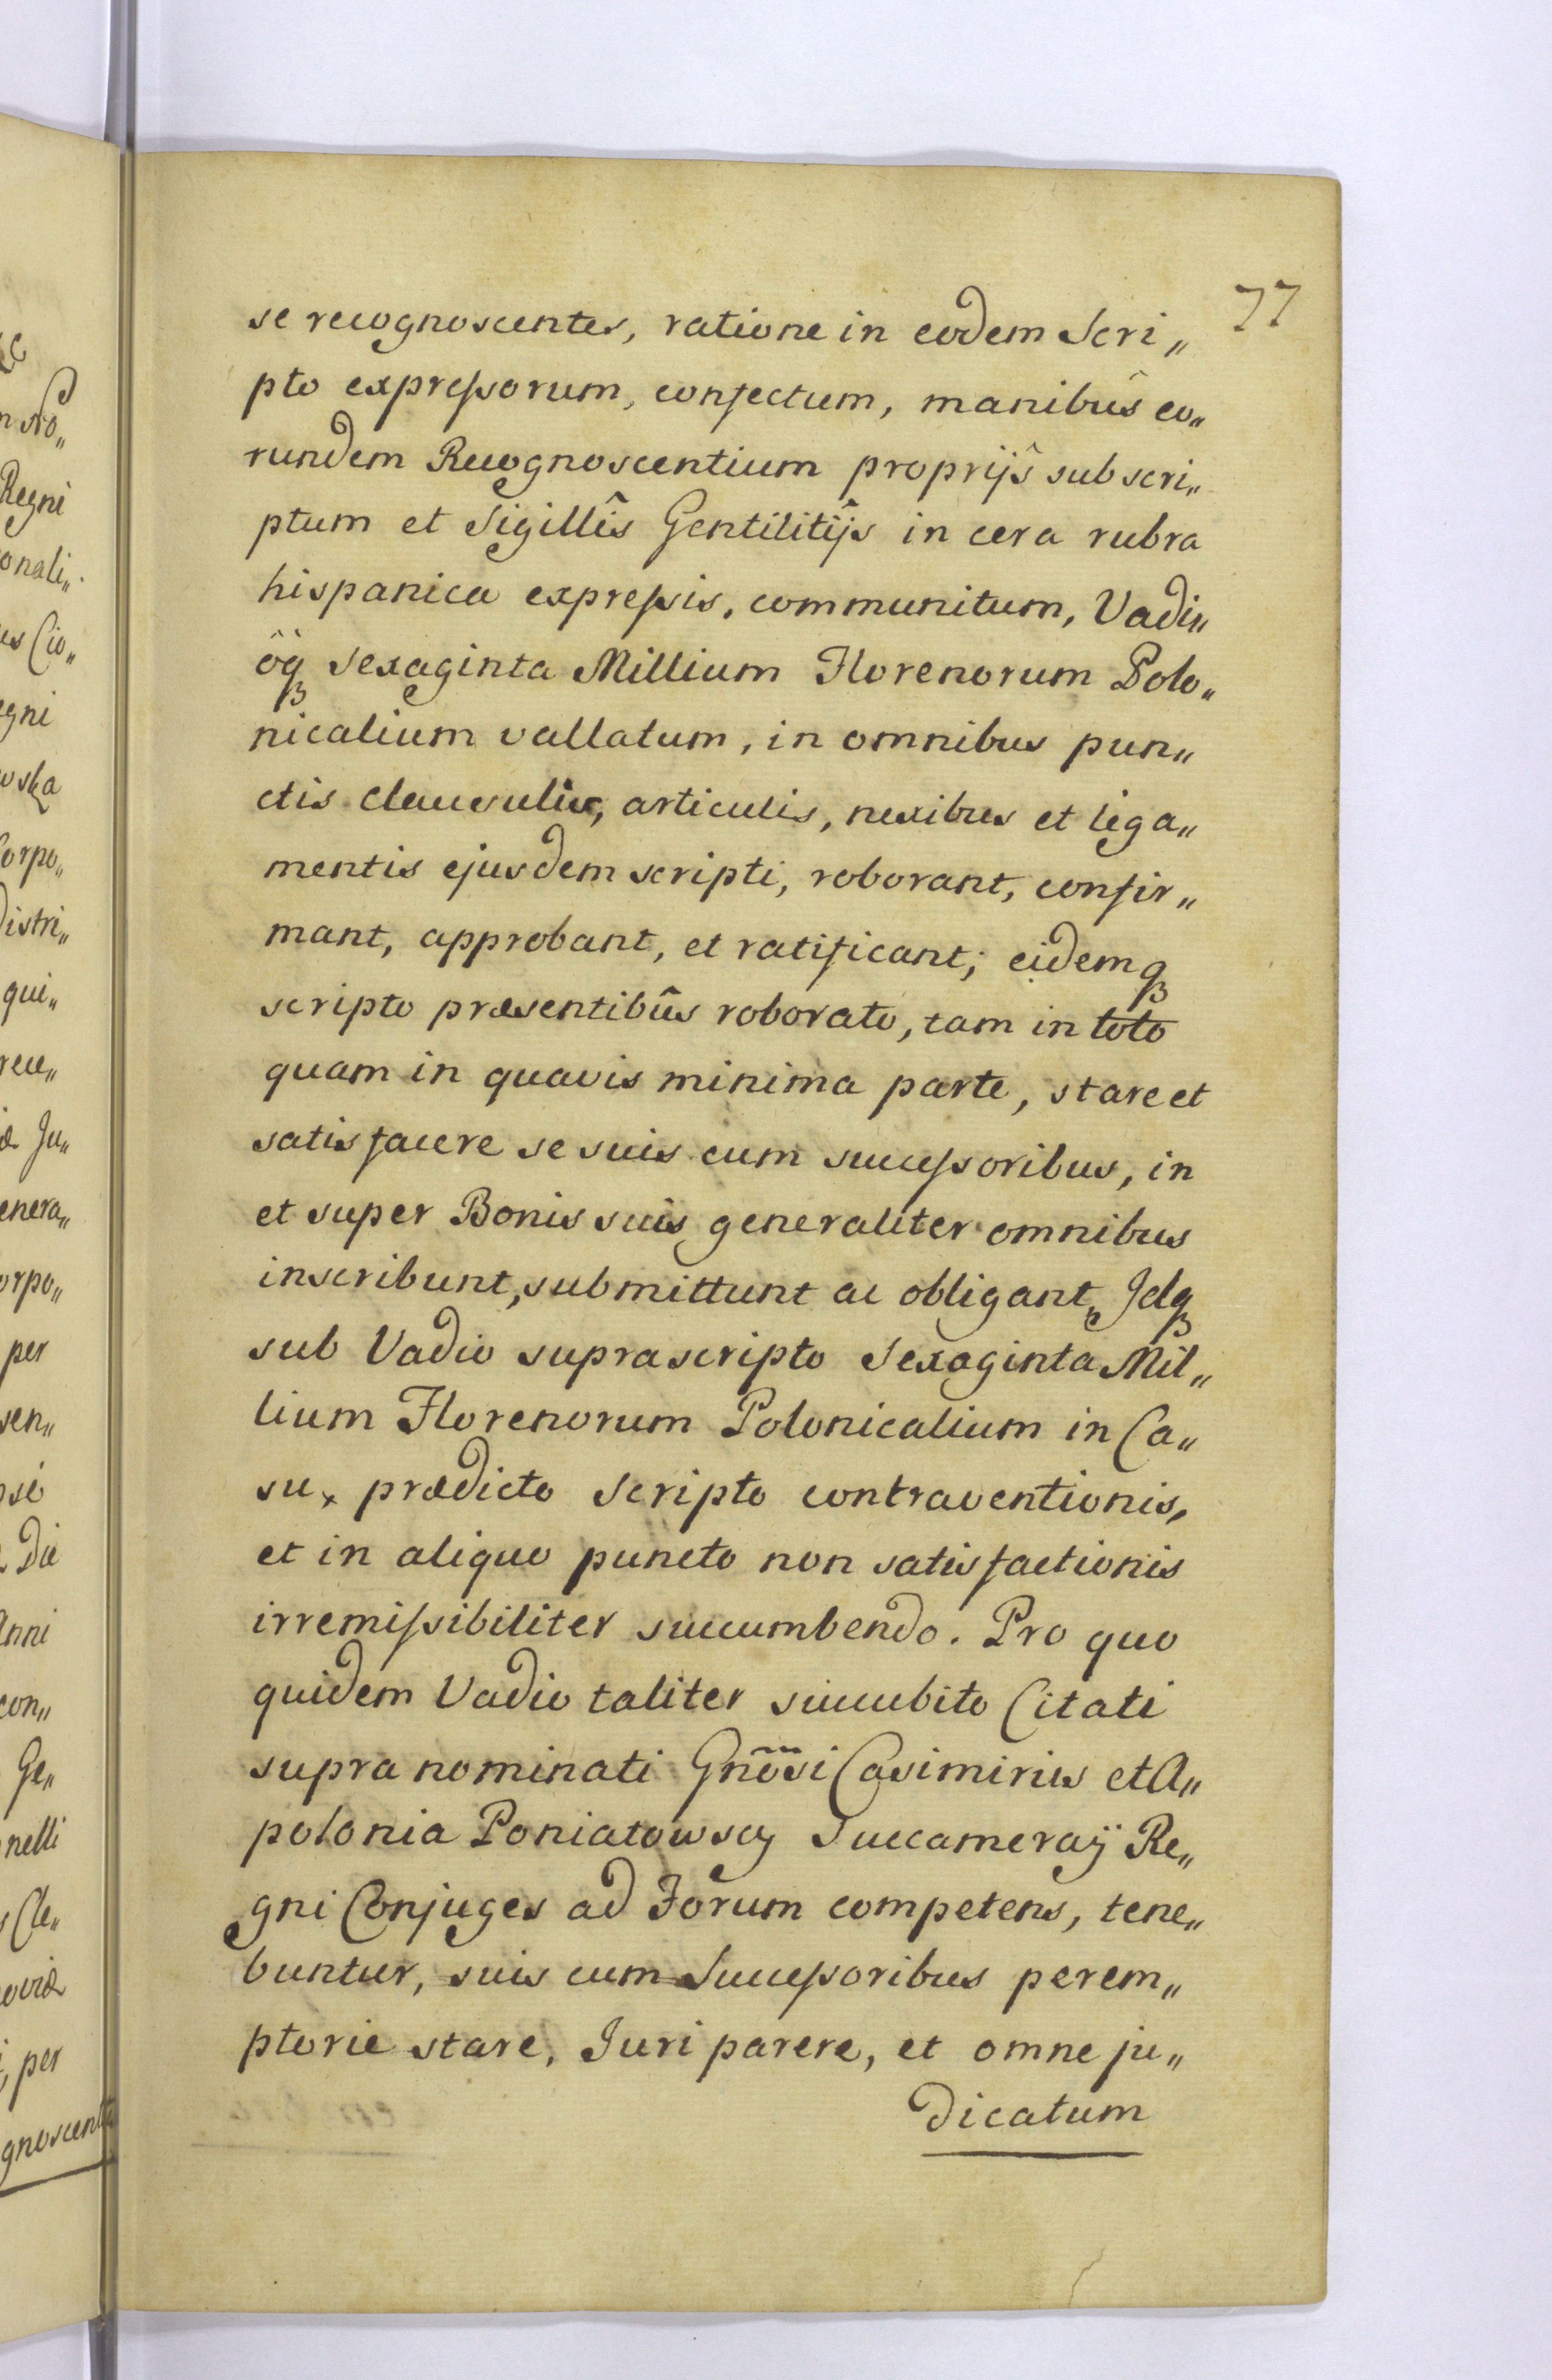 77
se recognoscentes, ratione in eodem Scri„
pto expressorum, confectum, manibûs eo„
rundem Recognoscentium proprijs subscri„
ptum et Sigillîs Gentilitijs in cera rubra
hispanica expressis, communitum, Vadi„
ôq₃ Sexaginta Millium Florenorum Polo„
nicalium vallatum, in omnibus pun„
ctis clausulis, articulis, nexibus et liga„
mentis ejusdem scripti, roborant, confir„
mant, approbant, et ratificant; eidemq₃
scripto præsentibûs roborato, tam in toto
quam in quavis minima parte, stare et
satisfacere se suis cum successoribus, in
et super Bonis suis generaliter omnibus
inscribunt, submittunt ac obligant„ Idq₃
sub Vadio suprascripto Sexaginta Mil„
lium Florenorum Polonicalium in Ca„
su, prædicto Scripto contraventionis,
et in aliquo puncto non satisfactionis
irremissibiliter succumbendo. Pro quo
quidem Vadio taliter succubito Citati
supra nominati Gnõsi Casimirius et A„
polonia Poniatowscy Succameraÿ Re„
gni Conjuges ad Forum competens, tene„
buntur, suis cum Successoribus perem„
ptorie stare, Juri parere, et omne ju„
dicatum